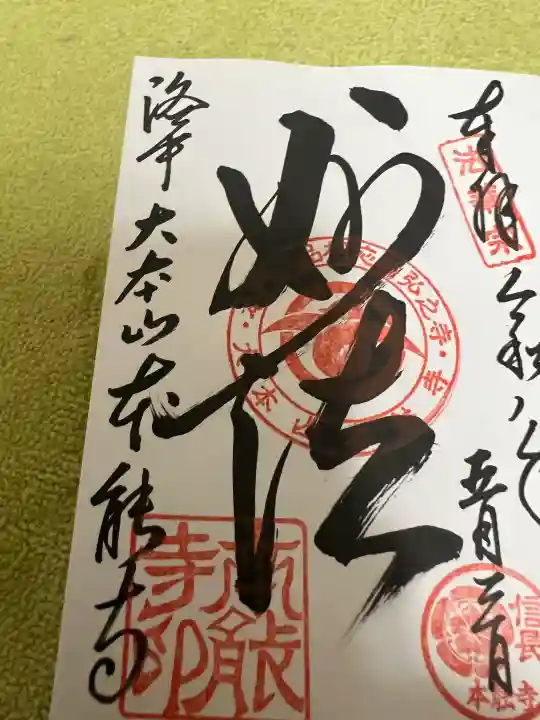 奉拝
令和八年
五月三日
妙法
洛中 大本山 本能寺
本能寺印
信長
本能寺